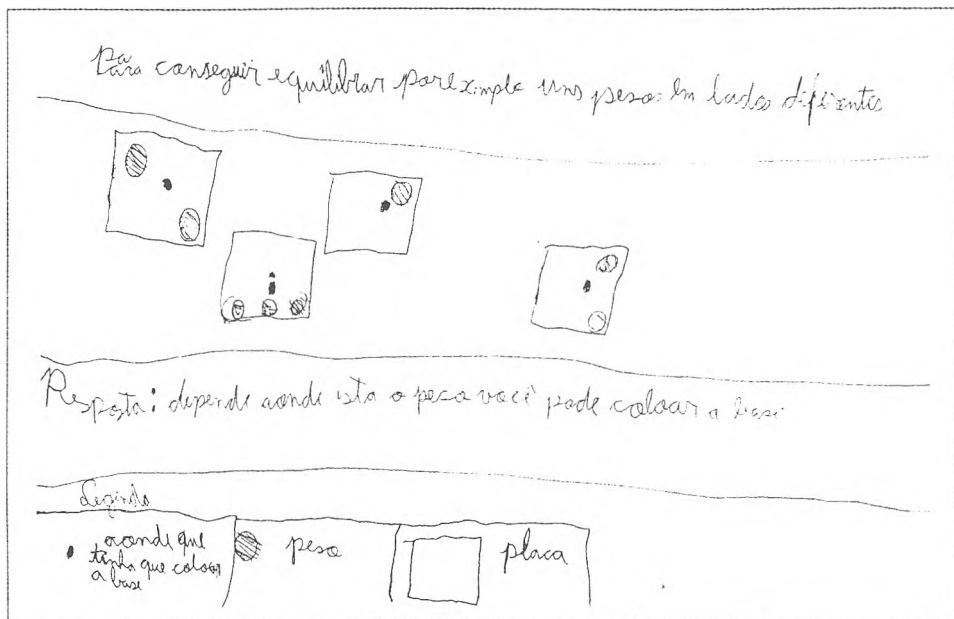 Para conseguir equilibrar por exemplo uns pesos em lados diferentes
Resposta: depende aonde esta o peso você pode colocar a base
Legenda
aonde que
tinha que colocar
a base
peso
placa